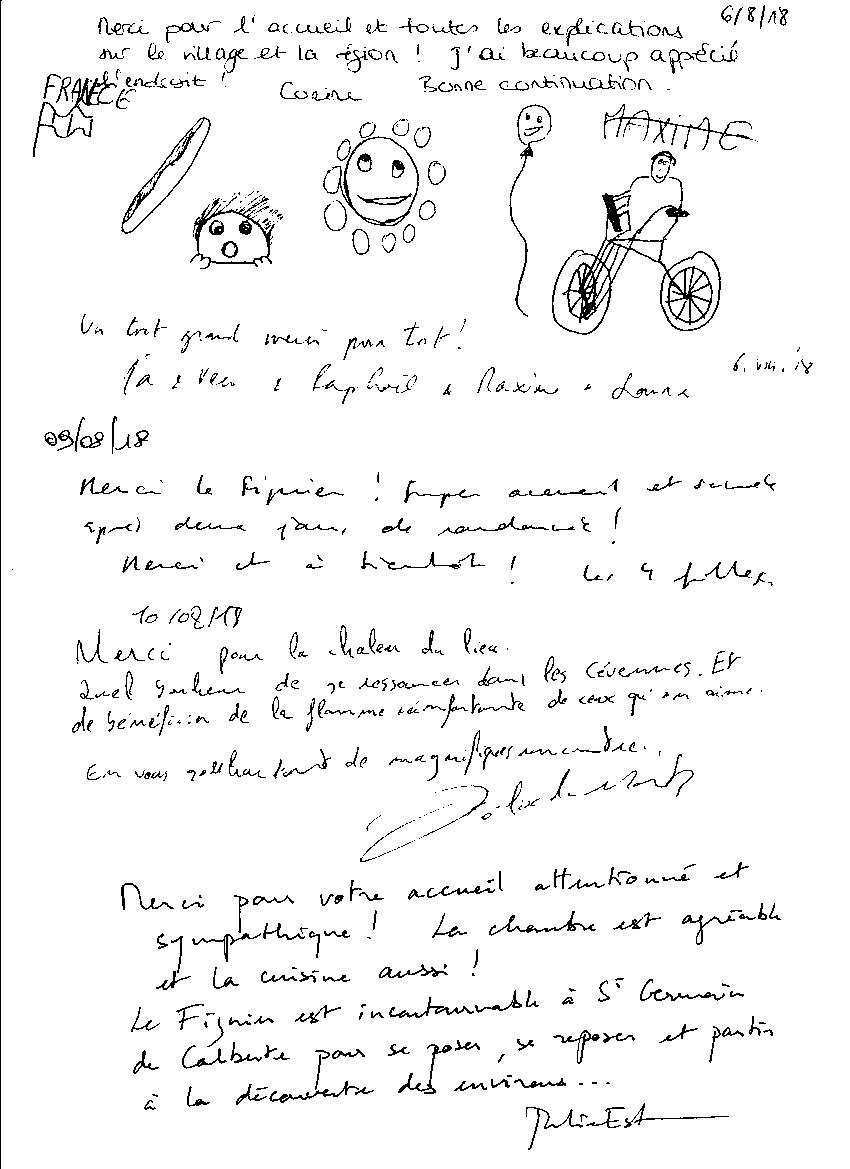 6/8/18
Merci pour l'accueil et toutes les explications
sur le village et la région ! J'ai beaucoup apprécié
l'endroit !
Bonne continuation.
FRANCE
MAXIME
Un tout grand merci pour tout !
Raphaël & Maxime
6. VIII. '18
09/08/18
Merci le Figuier ! Super moment et
après deux jours de randonnée !
Merci et à bientôt ! Les 4 filles
10/08/18
Merci pour la chaleur du lieu.
Quel bonheur de se ressourcer dans les Cévennes. Et
de bénéficier de la flamme réconfortante de ceux qui aime.
En vous souhaitant de magnifiques rencontres..
Merci pour votre accueil attentionné et
sympathique ! La chambre est agréable
et la cuisine aussi !
Le Figuier est incontournable à St Germain
de Calberte pour se poser, se reposer et partir
à la découverte des environs...